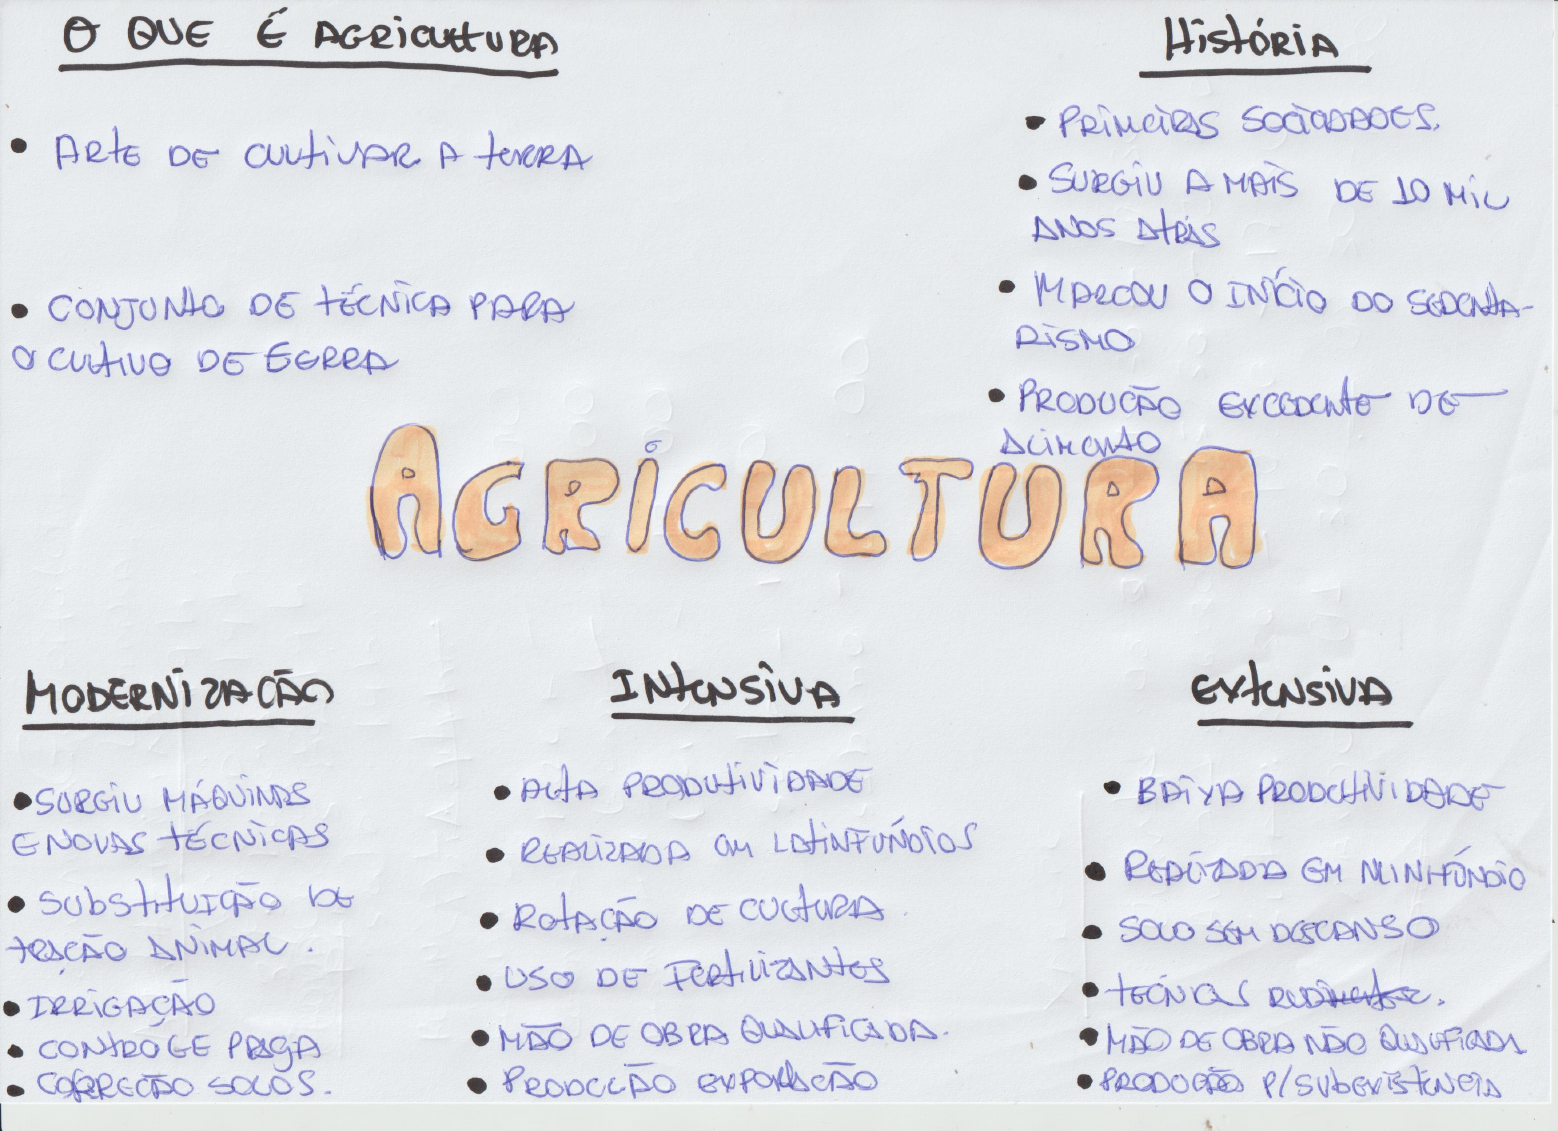 O QUE É AGRICULTURA
• ARTE DE CULTIVAR A TERRA
• CONJUNTO DE TÉCNICA PARA
O CULTIVO DE TERRA
História
• PRIMEIRAS SOCIEDADES.
• SURGIU A MAIS DE 10 MIL
ANOS ATRÁS
• MARCOU O INÍCIO DO SEDENTA-
RISMO
• PRODUÇÃO EXCEDENTE DE
ALIMENTO
AGRICULTURA
MODERNIZAÇÃO
• SURGIU MÁQUINAS
E NOVAS TÉCNICAS
• SUBSTITUIÇÃO DE
TRAÇÃO ANIMAL.
• IRRIGAÇÃO
• CONTROLE PRAGA
• CORREÇÃO SOLOS.
INTENSIVA
• ALTA PRODUTIVIDADE
• REALIZADA EM LATINFÚNDIOS
• ROTAÇÃO DE CULTURA.
• USO DE FERTILIZANTES
• MÃO DE OBRA QUALIFICADA.
• PRODUÇÃO EXPORTAÇÃO
EXTENSIVA
• BAIXA PRODUTIVIDADE
• REALIZADA EM MINIFÚNDIO
• SOLO SEM DESCANSO
• TÉCNICAS
• MÃO DE OBRA NÃO QUALIFICADA
• PRODUÇÃO P/ SUBEXISTÊNCIA